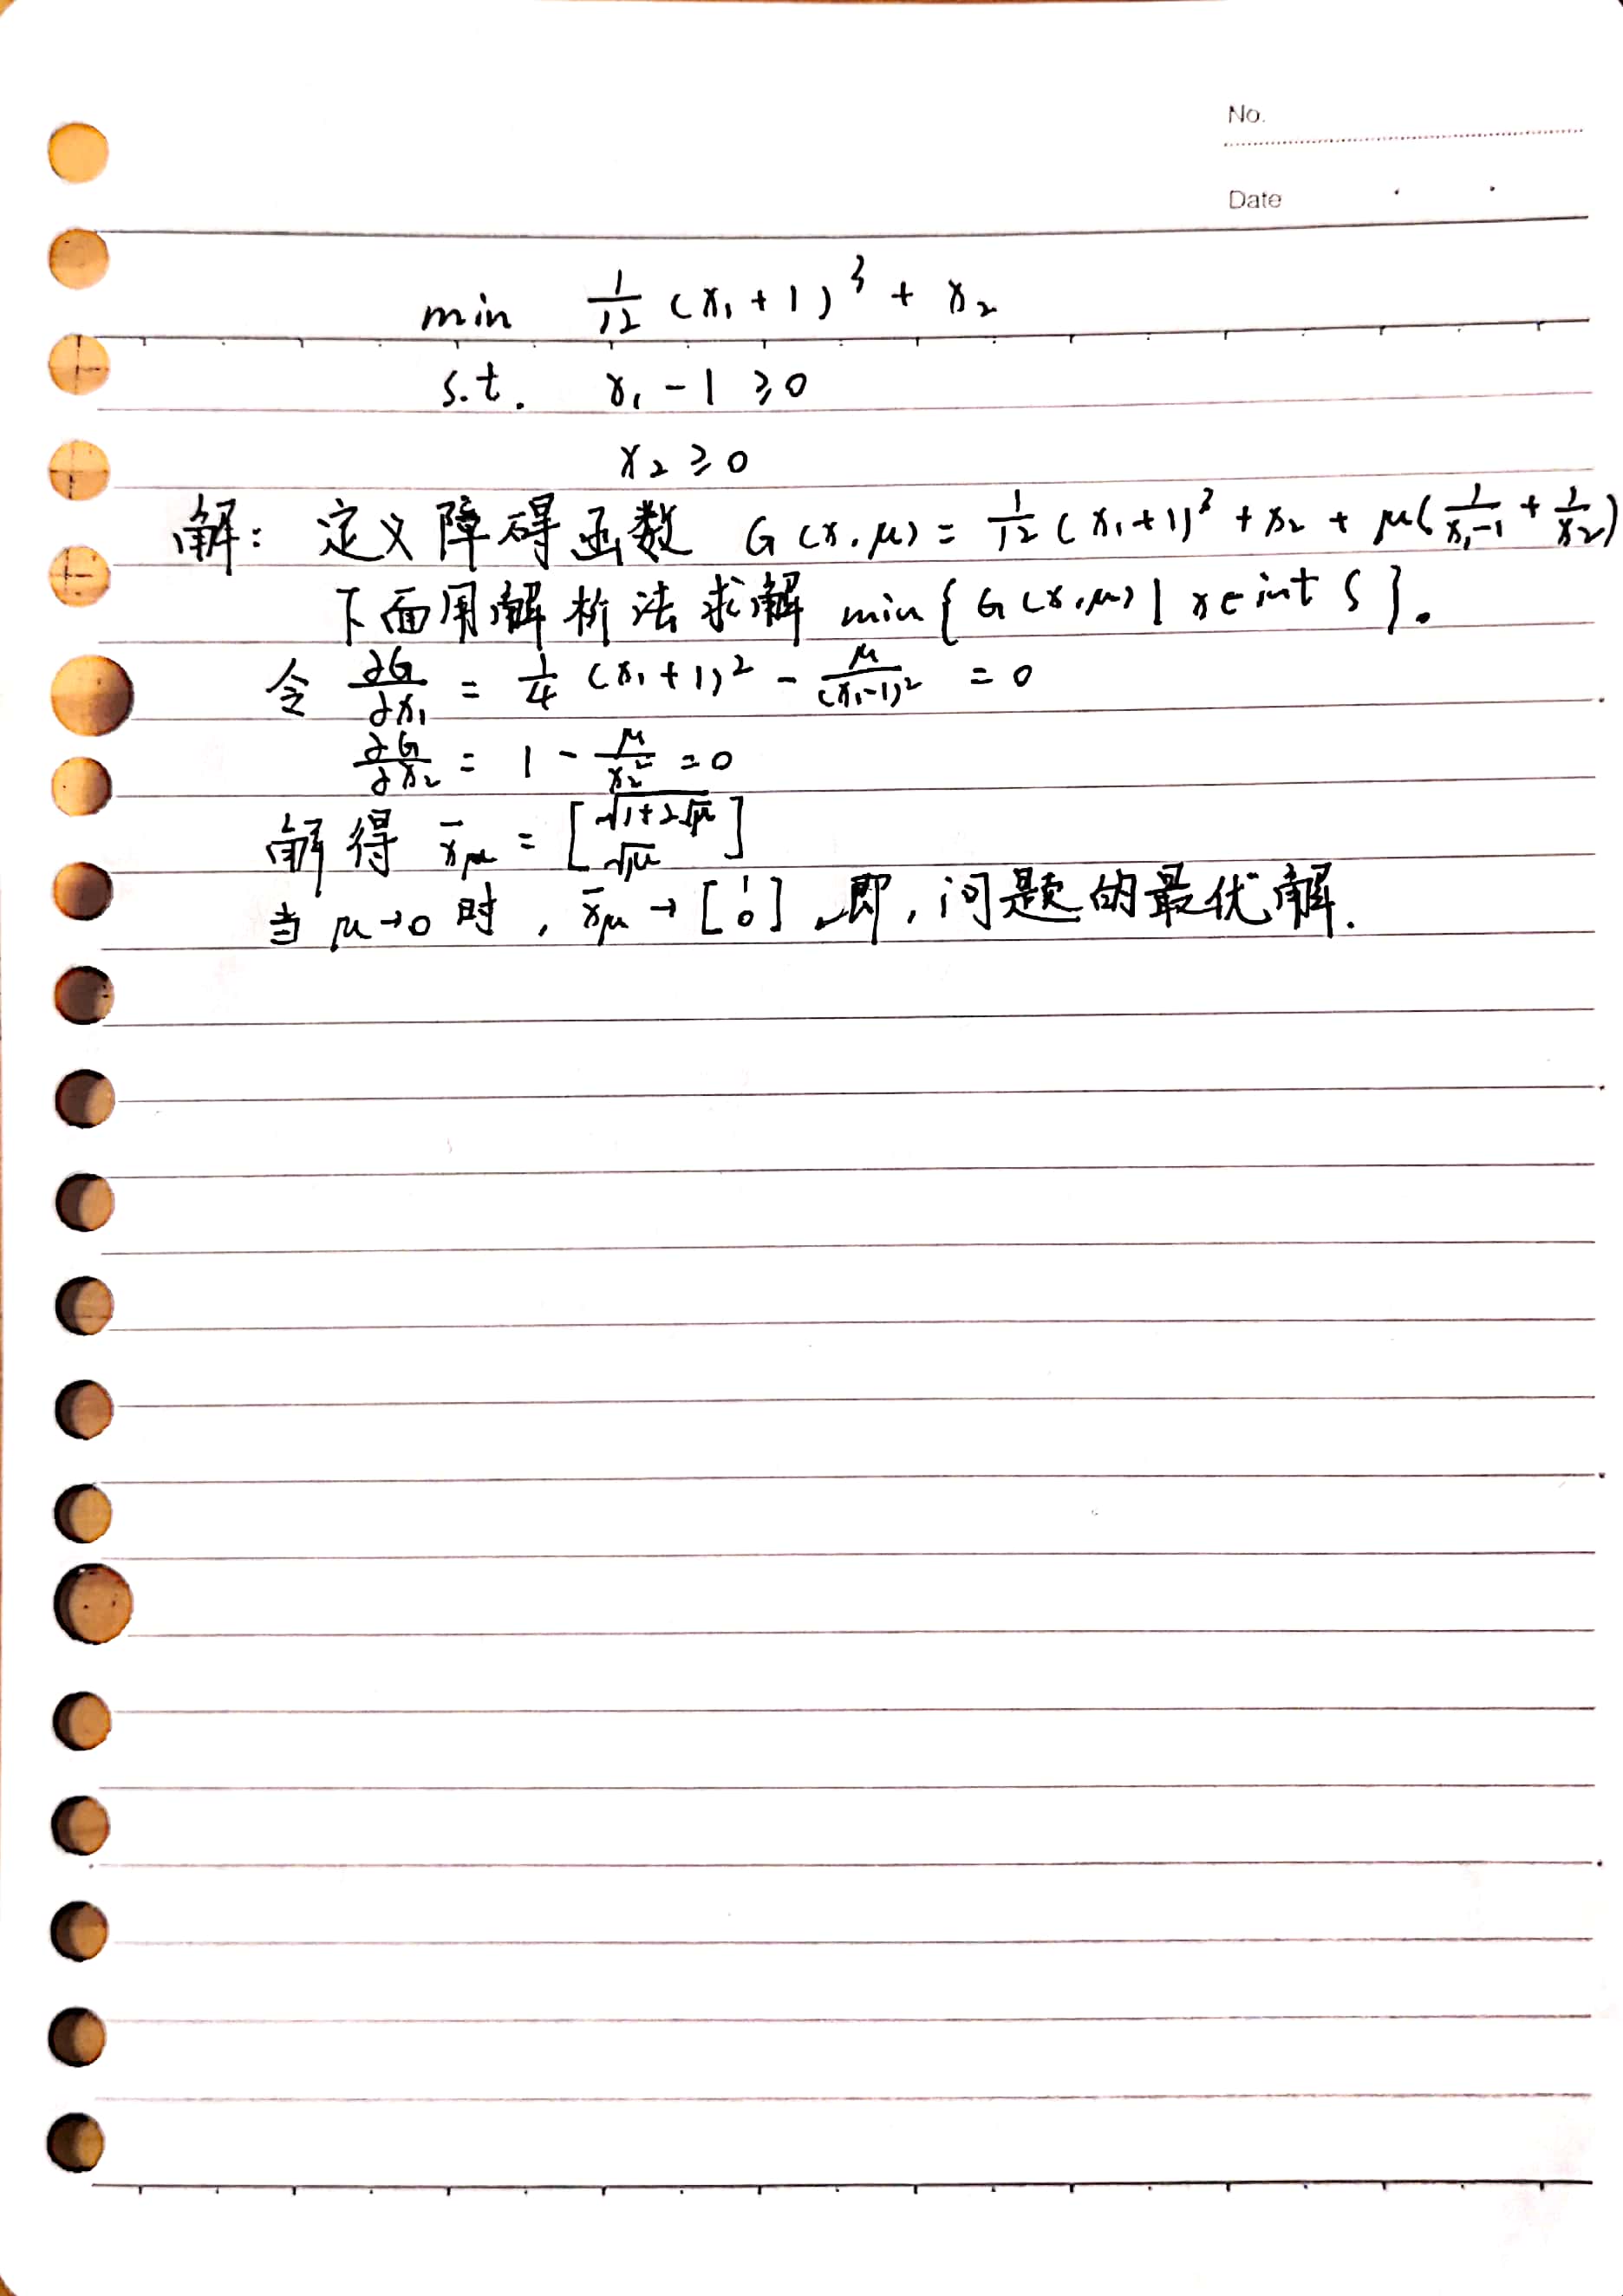 No.
Date
min 1/12 (x₁+1)³ + x₂
s.t. x₁-1 ≥0
x₂≥0
解: 定义障碍函数 G(x,μ)= 1/12(x₁+1)³+x₂+μ(1/(x₁-1)+1/x₂)
下面用解析法求解 min{G(x,μ)|x∈int S}.
令 ∂G/∂x₁ = 1/4 (x₁+1)² - μ/(x₁-1)² =0
∂G/∂x₂ = 1 - μ/x₂² =0
解得 x̄μ = [√(1+2√μ) √μ]
当μ→0时, x̄μ→[1 0],即,问题的最优解.